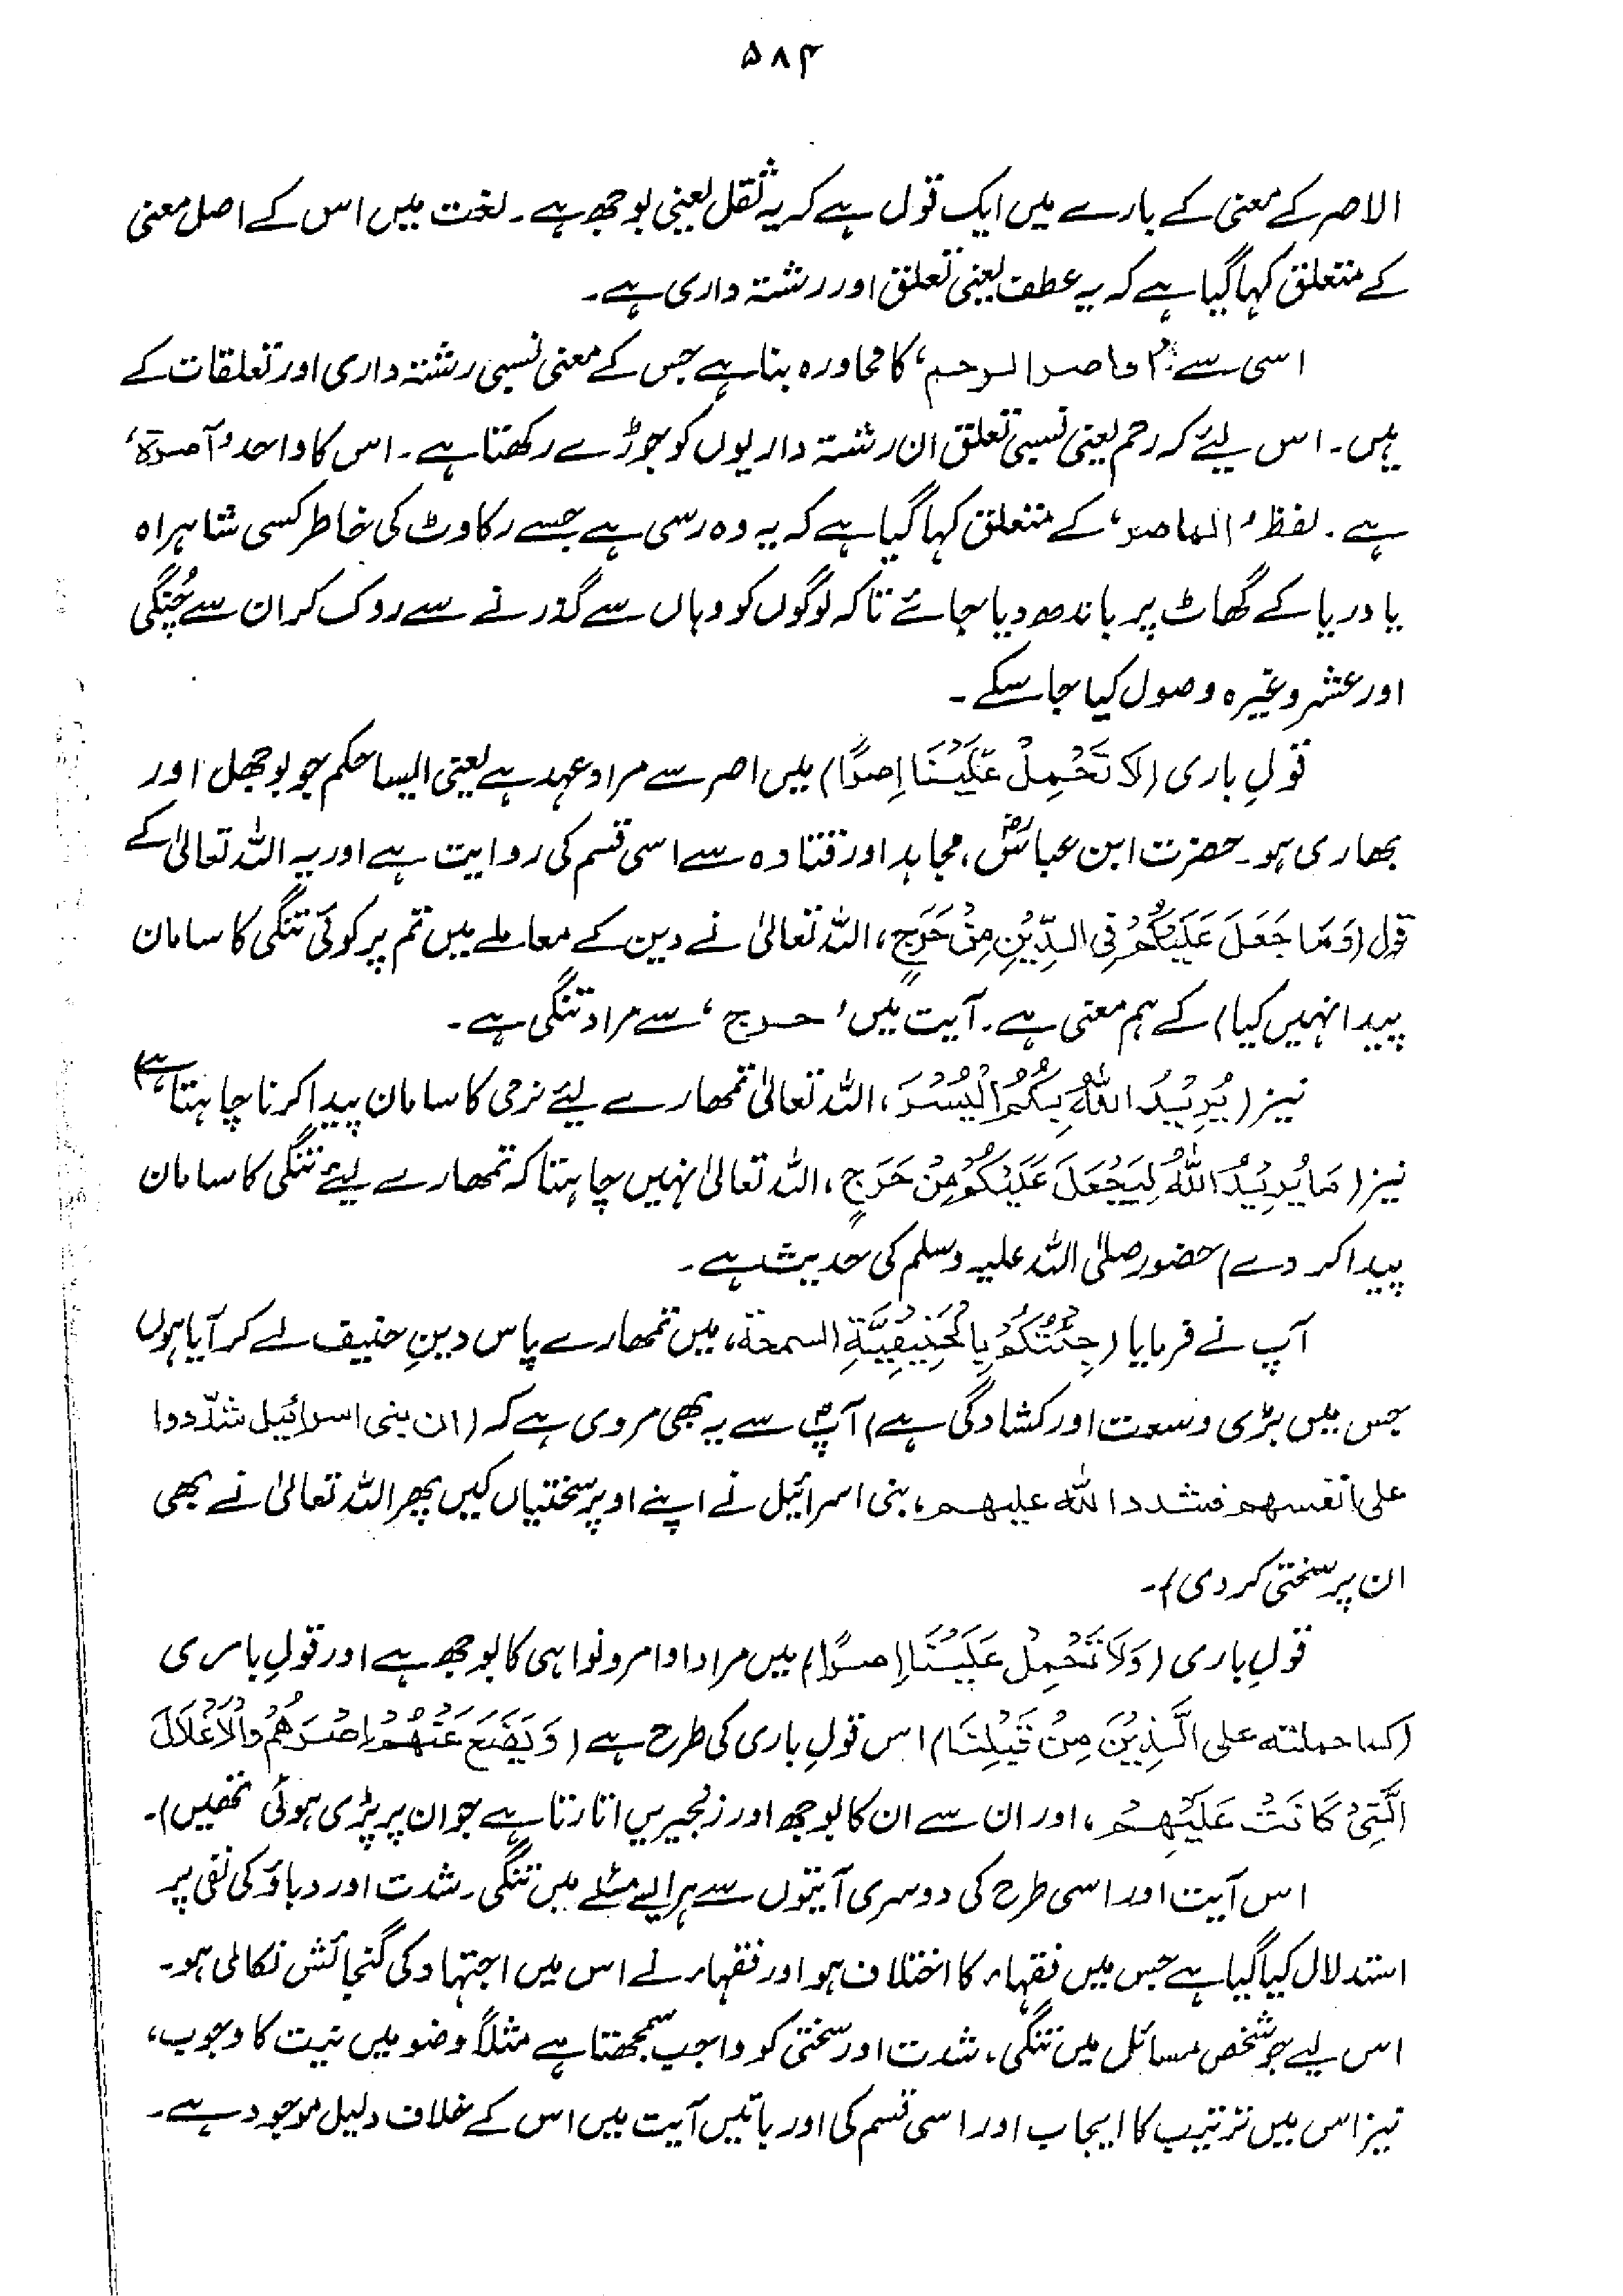 ۵۸۴
الاصر کے معنی کے بارے میں ایک قول ہے کہ یہ ثقل یعنی بوجھ ہے۔ لغت میں اس کے اصل معنی
کے متعلق کہا گیا ہے کہ یہ عطف یعنی تعلق اور رشتہ داری ہے۔
اسی سے 'اواصر الرحم' کا محاورہ بنا ہے جس کے معنی نسبی رشتہ داری اور تعلقات کے
ہیں۔ اس لیئے کہ رحم یعنی نسبی تعلق ان رشتہ داریوں کو جوڑے رکھتا ہے۔ اس کا واحد 'آصرۃ'
ہے۔ لفظ 'الماصر' کے متعلق کہا گیا ہے کہ یہ وہ رسی ہے جسے رکاوٹ کی خاطر کسی شاہراہ
یا دریا کے گھاٹ پر باندھ دیا جائے تاکہ لوگوں کو وہاں سے گذرنے سے روک کر ان سے چُنگی
اور عشر وغیرہ وصول کیا جا سکے۔
قولِ باری (لَا تَحْمِلْ عَلَيْنَا إِصْرًا) میں اصر سے مراد عہد ہے یعنی ایسا حکم جو بوجھل اور
بھاری ہو۔ حضرت ابن عباسؓ، مجاہد اور قتادہ سے اسی قسم کی روایت ہے اور یہ اللہ تعالیٰ کے
قول (وَمَا جَعَلَ عَلَيْكُمْ فِي الدِّيْنِ مِنْ حَرَجٍ، اللہ تعالیٰ نے دین کے معاملے میں تم پر کوئی تنگی کا سامان
پیدا نہیں کیا) کے ہم معنی ہے۔ آیت میں 'حرج' سے مراد تنگی ہے۔
نیز (يُرِيْدُ اللّٰهُ بِكُمُ الْيُسْرَ، اللہ تعالیٰ تمھارے لیئے نرمی کا سامان پیدا کرنا چاہتا ہے)
نیز (مَا يُرِيْدُ اللّٰهُ لِيَجْعَلَ عَلَيْكُمْ مِنْ حَرَجٍ، اللہ تعالیٰ نہیں چاہتا کہ تمھارے لیئے تنگی کا سامان
پیدا کر دے) حضور صلی اللہ علیہ وسلم کی حدیث ہے۔
آپ نے فرمایا (جِئْتُكُمْ بِالْحَنِيْفِيَّةِ السمحة، میں تمھارے پاس دینِ حنیف لے کر آیا ہوں
جس میں بڑی وسعت اور کشادگی ہے) آپؐ سے یہ بھی مروی ہے کہ (ان بنی اسرائیل شدّدوا
علی انفسہم فشدد اللہ علیہم، بنی اسرائیل نے اپنے اوپر سختیاں کیں پھر اللہ تعالیٰ نے بھی
ان پر سختی کر دی)۔
قولِ باری (وَلَا تَحْمِلْ عَلَيْنَا إِصْرًا) میں مراد اوامر و نواہی کا بوجھ ہے اور قولِ باری
(كما حملته على الَّذِيْنَ مِنْ قَبْلِنَا) اس قولِ باری کی طرح ہے (وَيَضَعُ عَنْهُمْ إِصْرَهُمْ وَالْأَغْلَالَ
الَّتِيْ كَانَتْ عَلَيْهِمْ، اور ان سے ان کا بوجھ اور زنجیریں اتارتا ہے جو ان پر پڑی ہوئی تھیں)۔
اس آیت اور اسی طرح کی دوسری آیتوں سے ہر ایسے مسئلے میں تنگی۔ شدت اور دباؤ کی نفی پر
استدلال کیا گیا ہے جس میں فقہاء کا اختلاف ہو اور فقہاء نے اس میں اجتہاد کی گنجائش نکالی ہو۔
اس لیے جو شخص مسائل میں تنگی، شدت اور سختی کو واجب سمجھتا ہے مثلاً وضو میں نیت کا وجوب،
نیز اس میں ترتیب کا ایجاب اور اسی قسم کی اور باتیں آیت میں اس کے خلاف دلیل موجود ہے۔